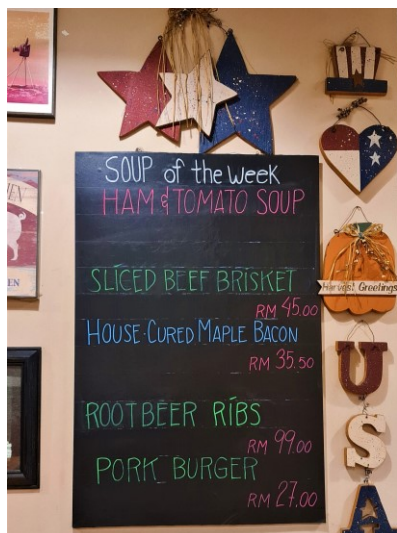 SOUP of the Week
HAM & TOMATO SOUP
SLICED BEEF BRISKET
RM 45.00
HOUSE-CURED MAPLE BACON
RM 35.50
ROOTBEER RIBS
RM 99.00
PORK BURGER
RM 27.00
Harvest Greetings
USA